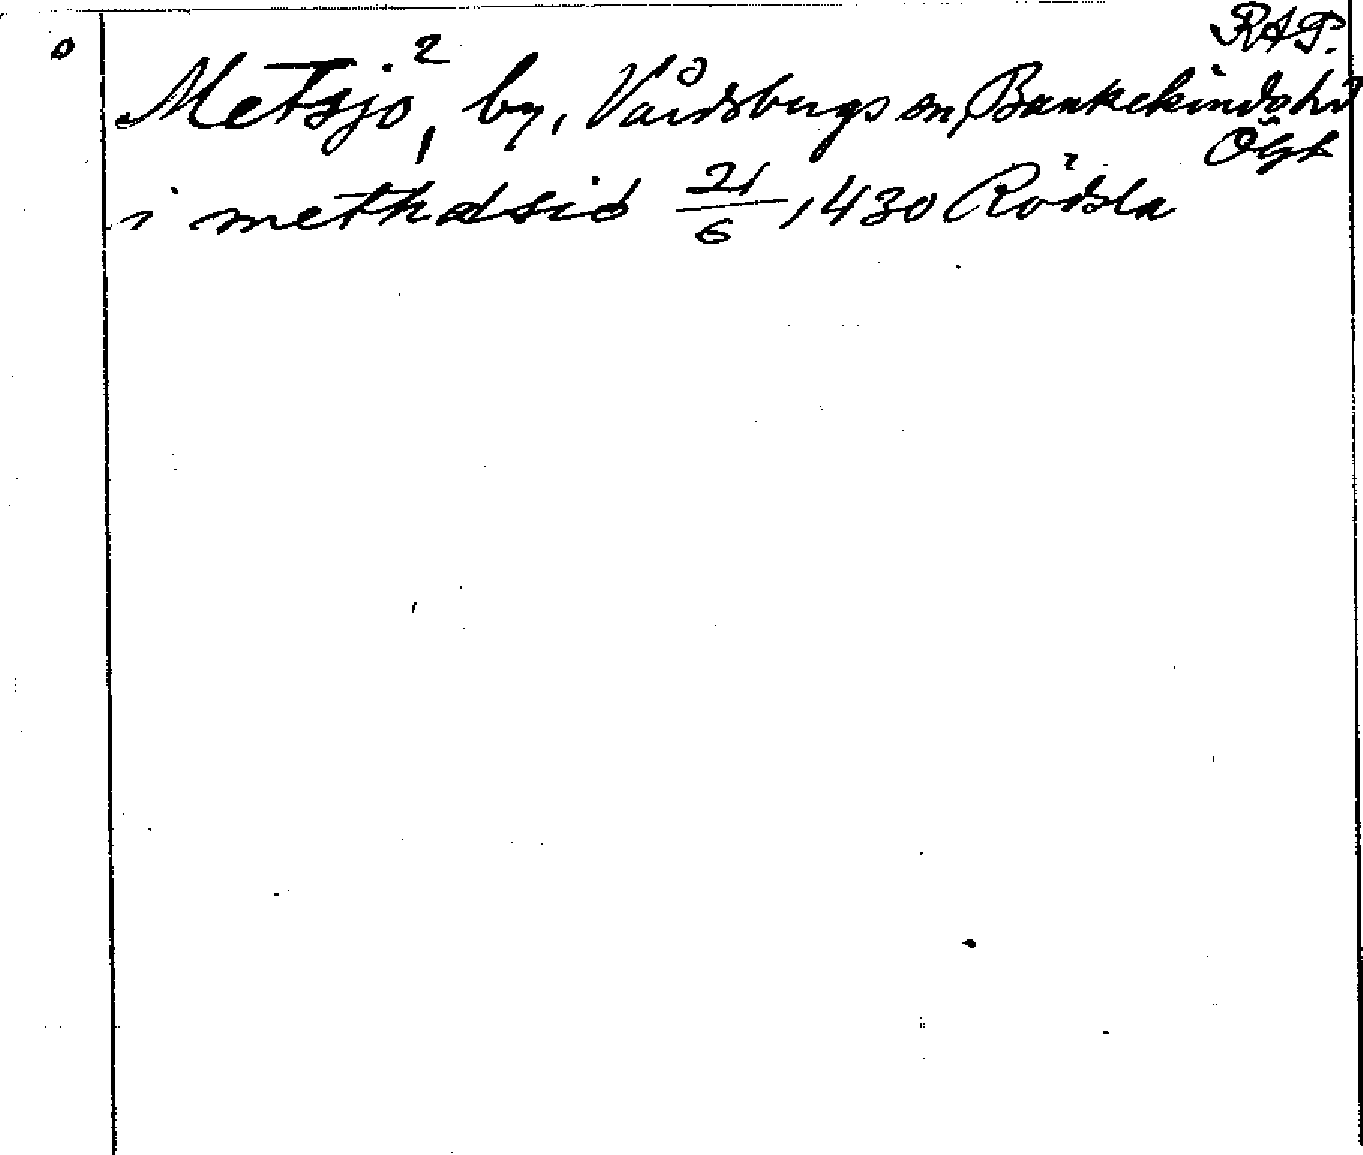 RAP.
o Metsjö², by, Vårdsbergs sn, Bankekinds hd
Ögl
i methæsiö 21/6 1430 Rödsla